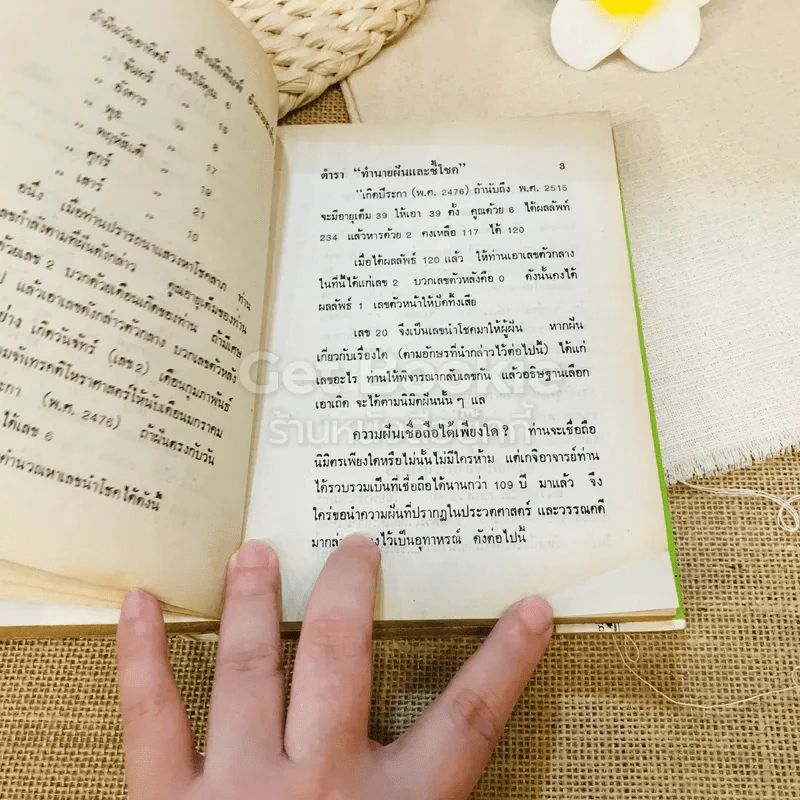 ถ้าฝันวันอาทิตย์ เลขให้คูณ 6
" จันทร์ " 15
" อังคาร " 8
" พุธ " 17
" พฤหัสบดี " 19
" ศุกร์ " 21
" เสาร์ " 10
อนึ่ง เมื่อท่านปรารถนาแสวงหาโชคลาภ ท่าน
เลขกำลังตามที่ฝันดังกล่าว คูณอายุเต็มของท่าน
ด้วยเลข 2 บวกด้วยเดือนเกิดของท่าน ถ้ามีเศษ
ป แล้วเอาเลขดังกล่าวตัวกลาง บวกเลขตัวหลัง
ย่าง เกิดวันจันทร์ (เลข 2) เดือนกุมภาพันธ์
มจักเทรคติโหราศาสตร์ให้นับเดือนมกราคม
กา (พ.ศ. 2476) ถ้าฝันตรงกับวัน
ได้เลข 6
คำนวณหาเลขนำโชคได้ดังนี้
ตำรา "ทำนายฝันและชี้โชค" 3
"เกิดปีระกา (พ.ศ. 2476) ถ้านับถึง พ.ศ. 2515
จะมีอายุเต็ม 39 ให้เอา 39 ตั้ง คูณด้วย 6 ได้ผลลัพท์
234 แล้วหารด้วย 2 คงเหลือ 117 ได้ 120
เมื่อได้ผลลัพธ์ 120 แล้ว ให้ท่านเอาเลขตัวกลาง
ในที่นี้ได้แก่เลข 2 บวกเลขตัวหลังคือ 0 ดังนั้นคงได้
ผลลัพธ์ 1 เลขตัวหน้าให้ปัดทิ้งเสีย
เลข 20 จึงเป็นเลขนำโชคมาให้ผู้ฝัน หากฝัน
เกี่ยวกับเรื่องใด (ตามอักษรที่นำกล่าวไว้ต่อไปนี้) ได้แก่
เลขอะไร ท่านให้พิจารณากลับเลขกัน แล้วอธิษฐานเลือก
เอาเถิด จะได้ตามนิมิตฝันนั้น ๆ แล
ความฝันเชื่อถือได้เพียงใด ? ท่านจะเชื่อถือ
นิมิตรเพียงใดหรือไม่นั้นไม่มีใครห้าม แต่เกจิอาจารย์ท่าน
ได้รวบรวมเป็นที่เชื่อถือได้นานกว่า 109 ปี มาแล้ว จึง
ใคร่ขอนำความฝันที่ปรากฏในประวัตศาสตร์ และวรรณคดี
มากล่ ไว้เป็นอุทาหรณ์ ดังต่อไปนี้
Get Bookie